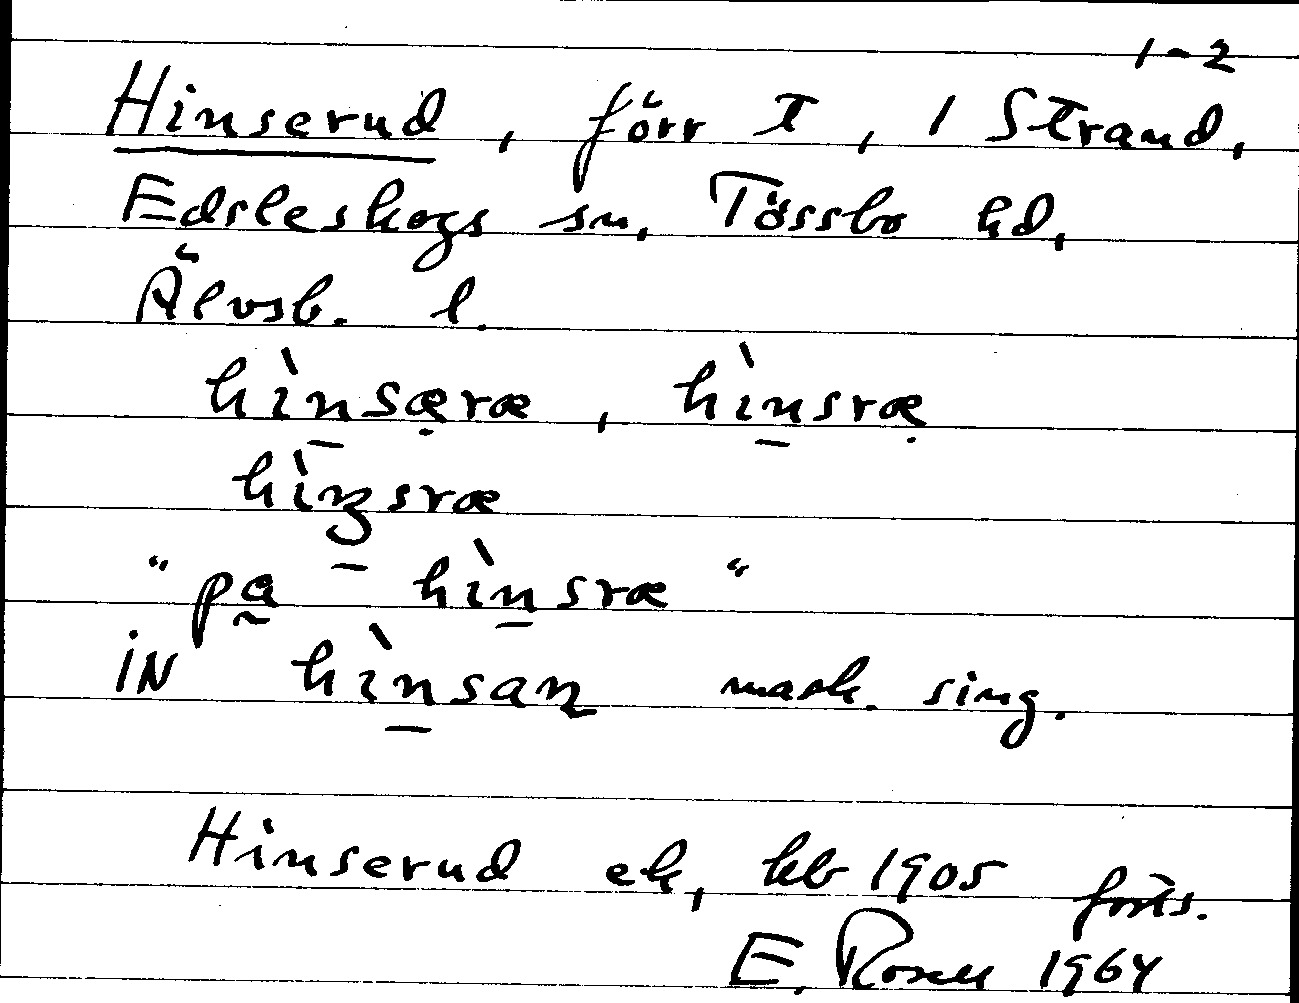 1-2
Hinserud, förr T, 1 Strand,
Edsleskogs sn, Tössbo hd,
Älvsb. l.
hı̀n̲sæ̣ræ, hı̀n̲sræ̣
hı̀ŋ̲sræ
"pa̰ hı̀n̲sræ"
iN hı̀n̲saɳ mask. sing.
Hinserud ek, kb 1905 forts.
E. Rosell 1964